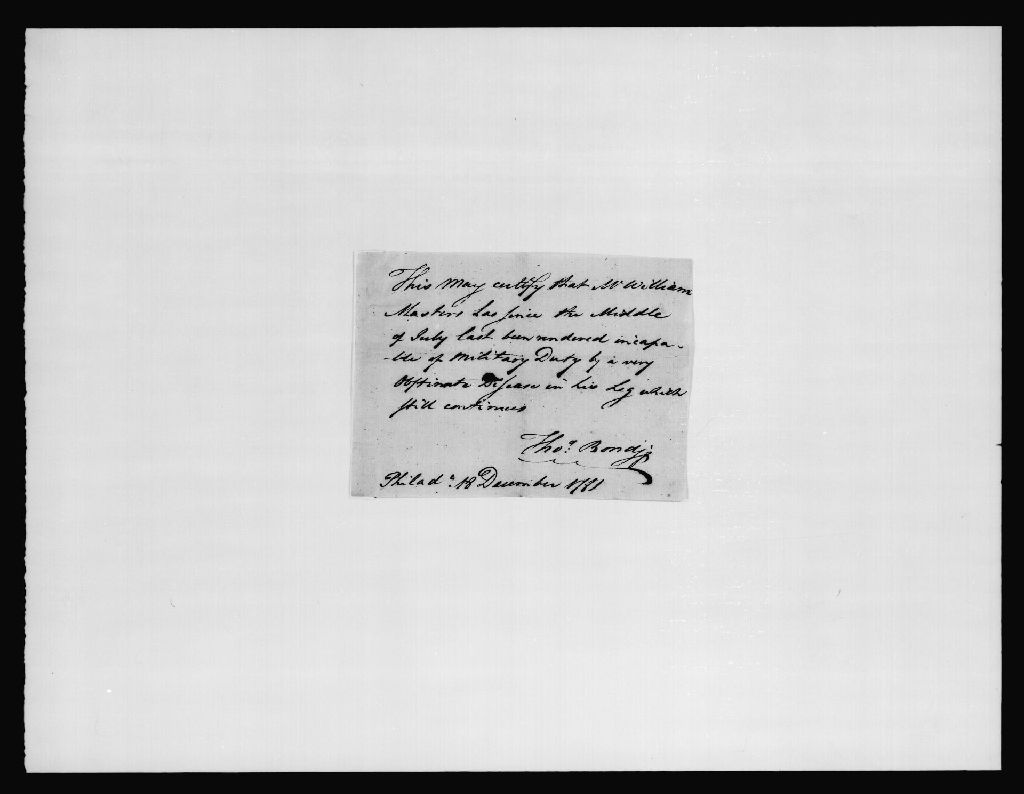 This may certify that Mr William
Masters has since the Middle
of July last been rendered incapa-
-ble of Military Duty by a very
Obstinate Disease in his Leg which
still continues
Thos. Bond jr
Philada. 18 December 1781